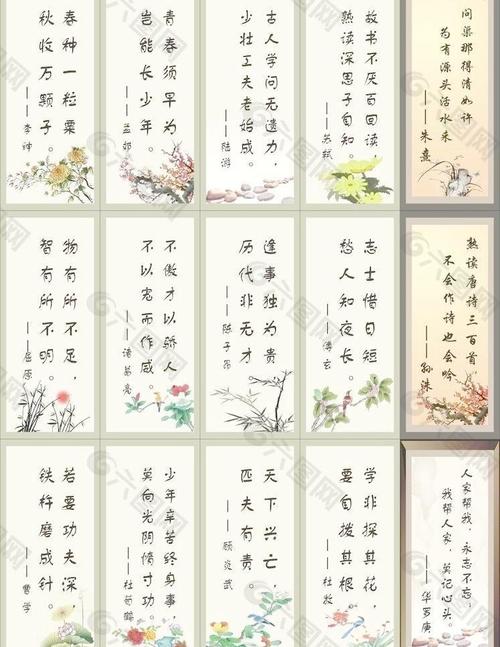 春种一粒粟
秋收万颗子。
——李绅
青春须早为
岂能长少年。
——孟郊
古人学问无遗力，
少壮工夫老始成。
——陆游
故书不厌百回读
熟读深思子自知。
——苏轼
问渠那得清如许
为有源头活水来
——朱熹
物有所不足，
智有所不明。
——屈原
不傲才以骄人
不以宠而作威。
——诸葛亮
逢事独为贵
历代非无才
——陈子昂
志士惜日短
愁人知夜长。
——傅玄
熟读唐诗三百首
不会作诗也会吟
——孙洙
若要功夫深，
铁杵磨成针。
——曹学
少年辛苦终身事，
莫向光阴惰寸功。
——杜荀鹤
天下兴亡，
匹夫有责。
——顾炎武
学非探其花，
要自拨其根。
——杜牧
人家帮我，永志不忘；
我帮人家，莫记心头。
——华罗庚
六图网